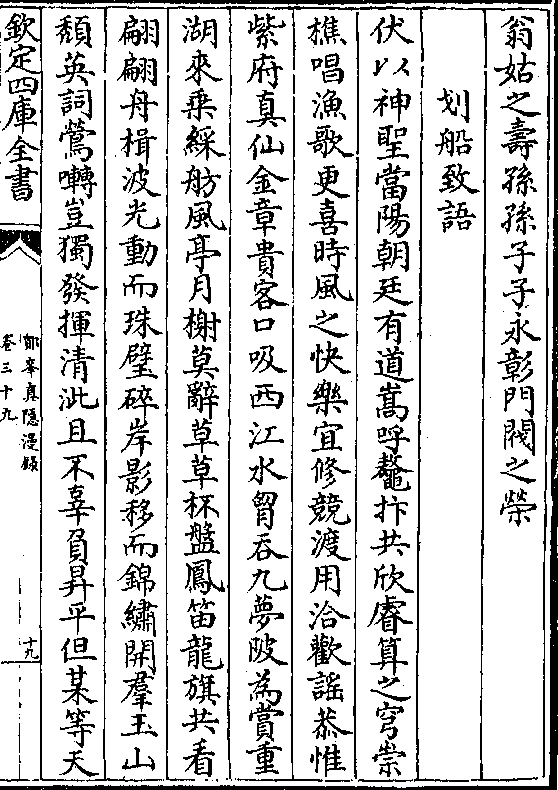 翁姑之壽孫孫子子永彰門閥之榮
划船致語
伏以神聖當陽朝廷有道嵩呼鼇抃共欣睿算之穹崇
樵唱漁歌更喜時風之快樂宜修競渡用洽歡謡恭惟
紫府真仙金章貴客口吸西江水胷吞九夢陂為賞重
湖來乗綵舫風亭月榭莫辭草草杯盤鳳笛龍旗共看
翩翩舟楫波光動而珠璧碎岸影移而錦繡開羣玉山
頹英詞鶯囀豈獨發揮清泚且不辜負昇平但某等天
欽定四庫全書
鄮峯真隱漫錄
卷三十九
十九